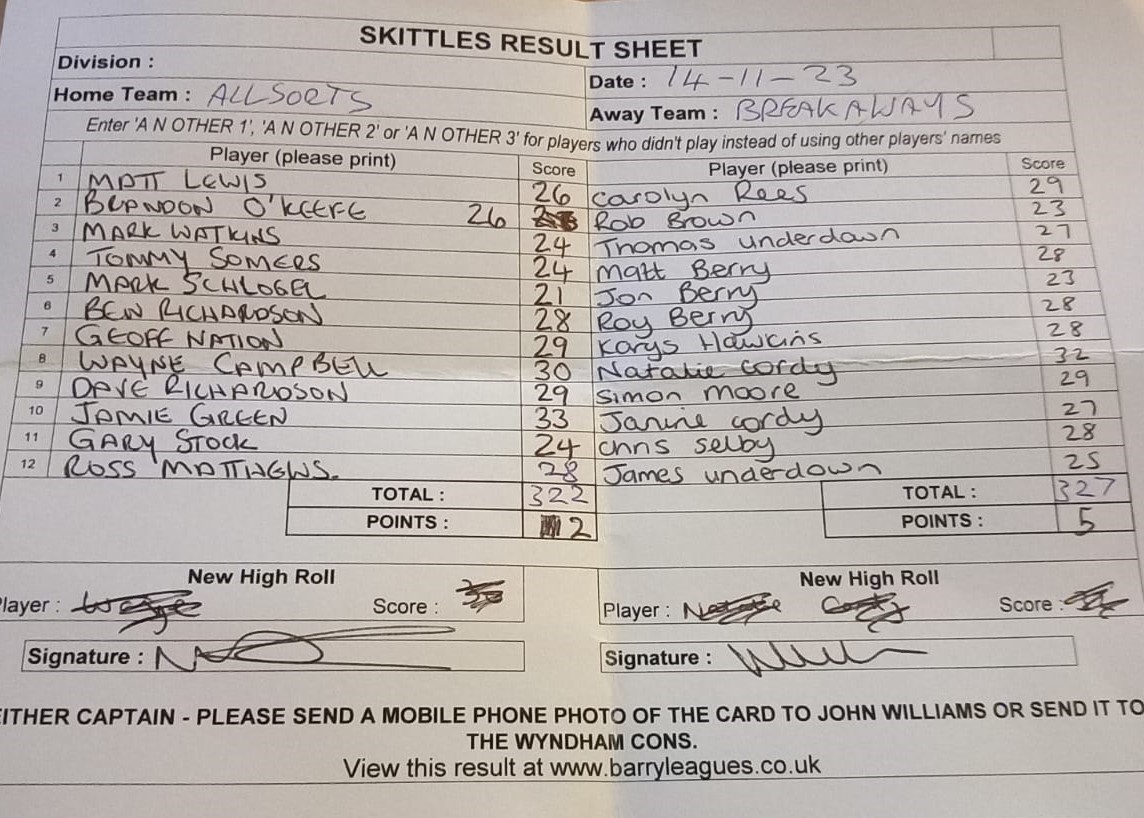 SKITTLES RESULT SHEET
Division :
Date : 14-11-23
Home Team : ALLSORTS
Away Team : BREAKAWAYS
Enter 'A N OTHER 1', 'A N OTHER 2' or 'A N OTHER 3' for players who didn't play instead of using other players' names
Player (please print) Score Player (please print) Score
1 MATT LEWIS 26 Carolyn Rees 29
2 BRANDON O'KEEFE 26 Rob Brown 23
3 MARK WATKINS 24 Thomas underdown 27
4 TOMMY SOMERS 24 Matt Berry 28
5 MARK SCHLOGEL 21 Jon Berry 23
6 BEN RICHARDSON 28 Roy Berry 28
7 GEOFF NATION 29 Karys Hawkins 28
8 WAYNE CAMPBELL 30 Natalie Cordy 32
9 DAVE RICHARDSON 29 Simon Moore 29
10 JAMIE GREEN 33 Janine Cordy 27
11 GARY STOCK 24 Chris Selby 28
12 ROSS MATTHEWS. 28 James underdown 25
TOTAL : 322 TOTAL : 327
POINTS : 2 POINTS : 5
New High Roll New High Roll
layer : Score : Player : Score :
Signature : Signature :
EITHER CAPTAIN - PLEASE SEND A MOBILE PHONE PHOTO OF THE CARD TO JOHN WILLIAMS OR SEND IT TO
THE WYNDHAM CONS.
View this result at www.barryleagues.co.uk